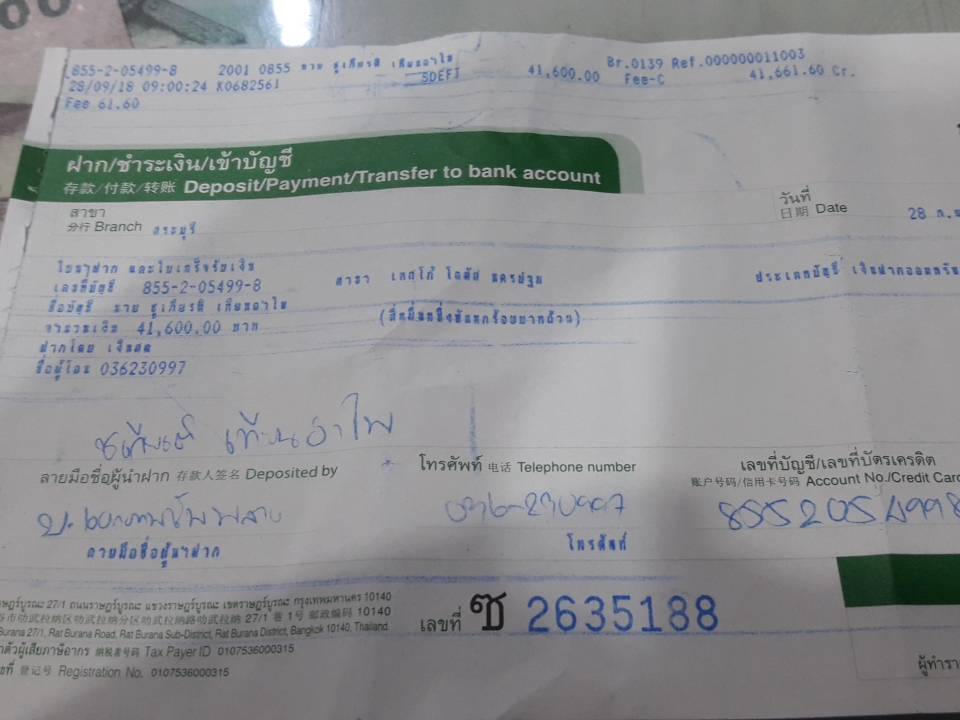 855-2-05499-8 2001 0855 นาย ชูเกียรติ เทียนอำไพ Br.0139 Ref.000000011003
28/09/18 09:00:24 K0682561 SDEFT 41,600.00 Fee-C 41,661.60 Cr.
Fee 61.60
ฝาก/ชำระเงิน/เข้าบัญชี
存款/付款/转账 Deposit/Payment/Transfer to bank account
สาขา
分行 Branch สระบุรี
วันที่
日期 Date 28 ก.ย
ใบนำฝาก และใบเสร็จรับเงิน
เลขที่บัญชี 855-2-05499-8 สาขา เทสโก้ โลตัส นครปฐม ประเภทบัญชี เงินฝากออมทรัพ
ชื่อบัญชี นาย ชูเกียรติ เทียนอำไพ
จำนวนเงิน 41,600.00 บาท (สี่หมื่นหนึ่งพันหกร้อยบาทถ้วน)
ฝากโดย เงินสด
ชื่อผู้โอน 036230997
ชูเกียรติ เทียนอำไพ
ลายมือชื่อผู้นำฝาก 存款人签名 Deposited by
โทรศัพท์ 电话 Telephone number
เลขที่บัญชี/เลขที่บัตรเครดิต
账户号码/信用卡号码 Account No./Credit Card
036-230997
8552054998
ลายมือชื่อผู้นำฝาก
โทรศัพท์
ราษฎร์บูรณะ 27/1 ถนนราษฎร์บูรณะ แขวงราษฎร์บูรณะ เขตราษฎร์บูรณะ กรุงเทพมหานคร 10140
谷市叻武拉纳区叻武拉纳分区叻武拉纳路叻武拉纳 27/1 巷 1 号 邮政编码 10140
Burana 27/1, Rat Burana Road, Rat Burana Sub-District, Rat Burana District, Bangkok 10140, Thailand.
ตัวผู้เสียภาษีอากร 纳税者号码 Tax Payer ID 0107536000315
ที่ 登记号 Registration No. 0107536000315
เลขที่ ซ 2635188
ผู้ทำรา